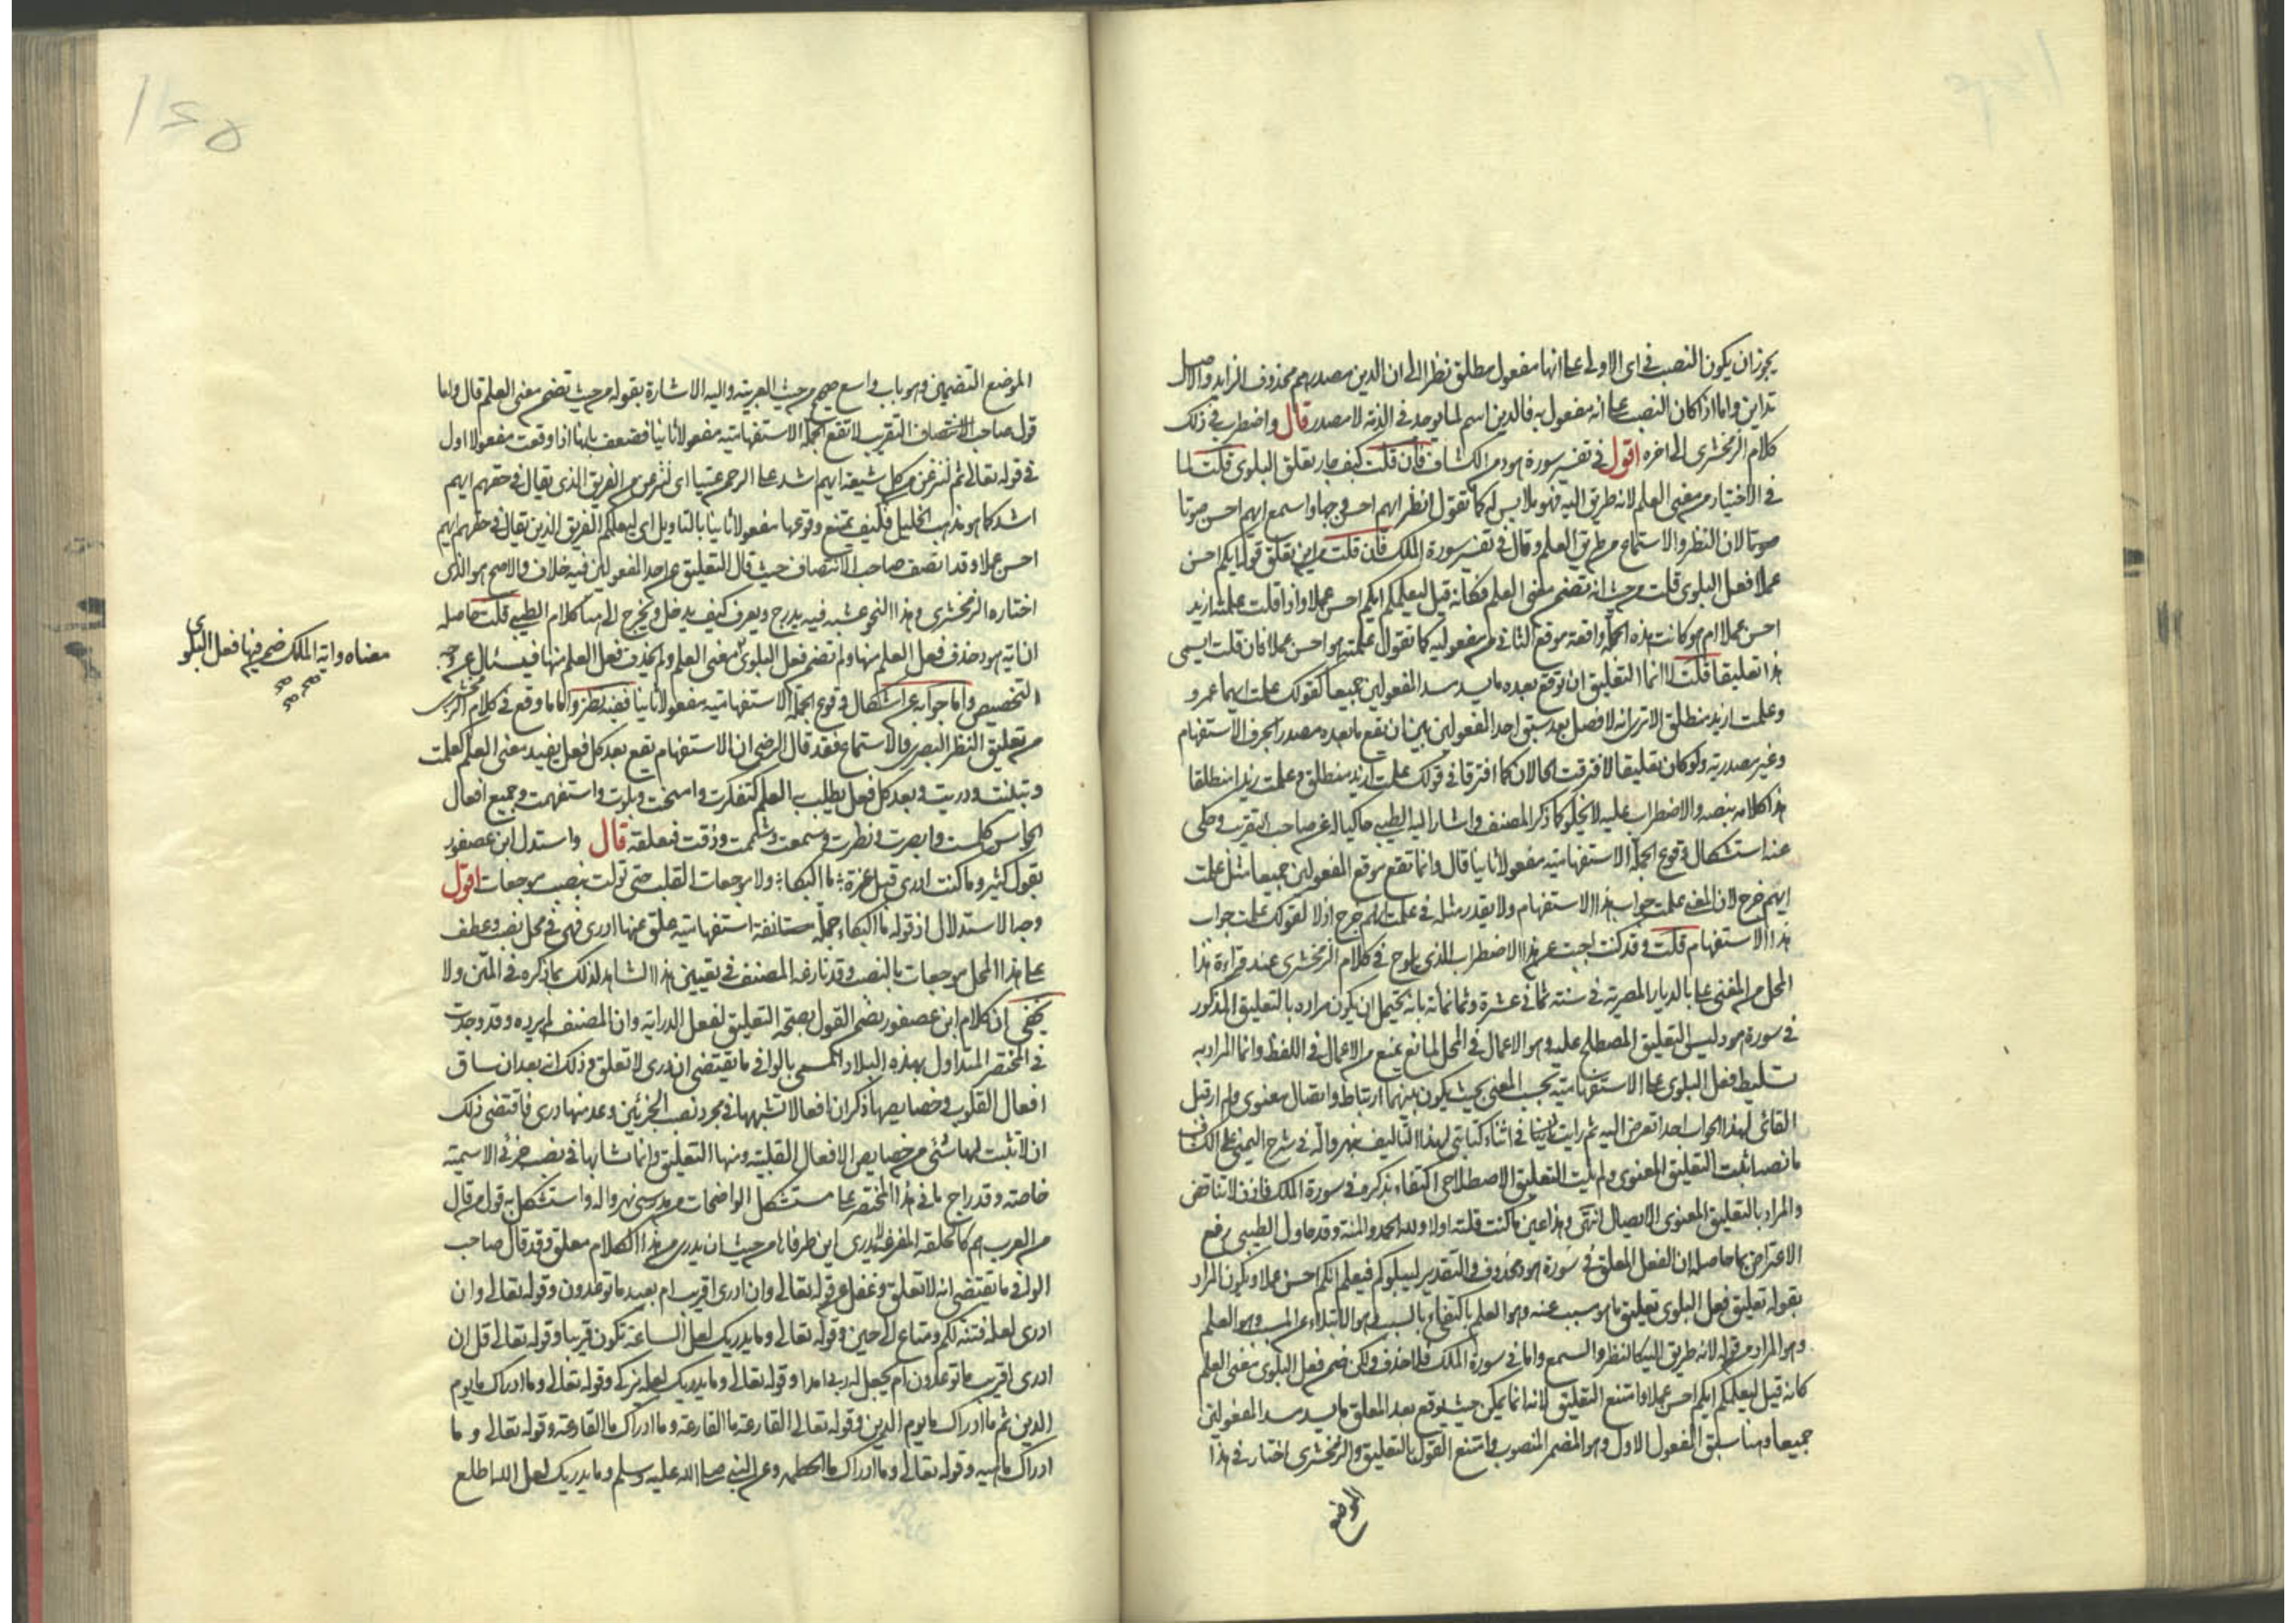 يجوز ان يكون النصب فى اى الاولى على انها مفعول مطلق نظرا الى ان الدين مصدرهم محذوف الزايد والاصل
تداين واما اذا كان النصب على انه مفعول به فالدين اسم لما يوجد فى الذمة لا مصدر قال واضطرب فى ذلك
كلام الزمخشرى الى اخره اقول فى تفسير سورة هود من الكشاف فان قلت كيف جاز تعلق البلوى قلت لما
فى الاختبار من معنى العلم لانه طريق اليه فهو ملابس له كما تقول انظر ايهم احسن وجها واسمع ايهم احسن صوتا
صوتا لان النظر والاستماع من طريق العلم وقال فى تفسير سورة الملك فان قلت من اين تعلق قوله ايكم احسن
عملا فعل البلوى قلت من حيث انه تضمن معنى العلم فكانه قيل ليعلمكم ايكم احسن عملا واذا قلت علمته ازيد
احسن عملا ام هو كانت هذه الجملة واقعة موقع الثانى من مفعوليه كما تقول علمته هو احسن عملا فان قلت ايسمى
هذا تعليقا قلت لا انما التعليق ان توقع بعده ما يسد مسد المفعولين جميعا كقولك علمت ايهما عمرو
وعلمت ازيد منطلق الا ترى انه لا فصل بعد سبق احد المفعولين بين ان تقع ما بعده مصدرا بحرف الاستفهام
وغير مصدر به ولو كان تعليقا لافترقت الحالان كما افترقا فى قولك علمت ازيد منطلق وعلمت زيدا منطلقا
هذا كلامه بنصه والاضطراب عليه لايخلو كما ذكر المصنف واشار اليه الطيبى حاكيا له عن صاحب التقريب وحكى
عنه استشكال وقوع الجملة الاستفهامية مفعولا ثانيا قال وانما تقع موقع المفعولين جميعا مثل علمت
ايهم خرج لان المعنى علمت جواب هذا الاستفهام ولا يقدر مثله فى علمت ايهم خرج اذ لا لقولك علمت جواب
هذا الاستفهام قلت وقد كنت اجبت عن هذا الاضطراب الذى يلوح فى كلام الزمخشرى عند قراءة هذا
المحل من المغنى على بالديار المصرية فى سنة ثمانى عشرة وثمانمائة بانه يحتمل ان يكون مراده بالتعليق المذكور
فى سورة هود ليس التعليق المصطلح عليه وهو الاعمال فى المحل لمانع يمنع من الاعمال فى اللفظ وانما المراد به
تسليط فعل البلوى على الاستفهامية بحسب المعنى بحيث يكون بينهما ارتباط واتصال معنوى ولم ار قبل
القائى لهذا الجواب احدا تعرض اليه ثم رايت فى اثناء كتابتى لهذا التاليف بنهرواله فى شرح اليمنى على الكشاف
ما نصه اثبت التعليق المعنوى ولم يثبت التعليق الاصطلاحى اكتفاء بذكره فى سورة الملك فاذن لا تناقض
والمراد بالتعليق المعنوى الايصال انتهى وهذا عين ما كنت قلته اولا ولله الحمد والمنة وقد حاول الطيبى رفع
الاعتراض بما حاصله ان الفعل المعلق فى سورة هود محذوف والتقدير ليبلوكم فيعلم ايكم احسن عملا ويكون المراد
بقوله تعليق فعل البلوى تعليق ما هو سبب عنه وهو العلم باكتفاء بالسبب وهو الابتلاء عن المسبب وهو العلم
وهو المراد من قوله لانه طريق اليه كالنظر والسمع واما فى سورة الملك فلا حذف ولكن ضمن فعل البلوى معنى العلم
كانه قيل ليعلمكم ايكم احسن عملا وامتنع التعليق لانه انما يمكن حيث يوقع بعد المعلق ما يسد مسد المفعولين
جميعا وهنا سبق المفعول الاول وهو المضمر المنصوب فامتنع القول بالتعليق والزمخشرى اختار فى هذا
الموضع
الموضع التضمين وهو باب واسع صحيح من حيث العربية واليه الاشارة بقوله من حيث تضمن معنى العلم قال واما
قول صاحب الانتصاف التقريب لا تقع الجملة الاستفهامية مفعولا ثانيا فضعيف بانها اذا وقعت مفعولا اول
فى قوله تعالى ثم لننزعن من كل شيعة ايهم اشد على الرحمن عتيا اى لننزعن من الفريق الذى يقال فى حقهم ايهم
اشد كما هو مذهب الخليل فكيف يمتنع وقوعها مفعولا ثانيا بالتاويل اى ليعلمكم الفريق الذين يقال فى حقهم ايهم
احسن عملا وقد انصف صاحب الانتصاف حيث قال التعليق عن احد المفعولين فيه خلاف والاصح هو الذى
اختاره الزمخشرى وهذا النحو عشه فيه يدرج ويعرف كيف يدخل ويخرج الى هنا كلام الطيبى قلت حاصله
ان اية هود حذف فعل العلم منها ولم تضمن فعل البلوى معنى العلم ولم يحذف فعل العلم منها فيسئال عن وجه
التخصيص واما جوابه عن استشكال وقوع الجملة الاستفهامية مفعولا ثانيا ففيه نظر واما ما وقع فى كلام الزمخشرى
من تعليق النظر البصرى والاستماع فقد قال الرضى ان الاستفهام يقع بعد كل فعل يفيد معنى العلم كعلمت
وتبينت ودريت وبعد كل فعل يطلب به العلم كتفكرت وامتحنت وبلوت واستفهمت وجميع افعال
الحواس كلمست وابصرت ونظرت وسمعت وشممت وذقت فمعلقة قال واستدل ابن عصفور
بقول كثير وما كنت ادرى قبل عزة ما البكا ولا موجعات القلب حتى تولت بنصب موجعات اقول
وجه الاستدلال ان قوله ما البكاء جملة مستانفة استفهامية علق عنها ادرى فهى فى محل نصب وعطف
على هذا المحل موجعات بالنصب وقد نازعه المصنف فى تعيين هذا الشاهد لذلك بما ذكره فى المتن ولا
يخفى ان كلام ابن عصفور تضمن القول بصحة التعليق لفعل الدراية وان المصنف لم يرده وقد وجدت
فى المختصر المتداول بهذه البلاد المسمى بالوافى ما يقتضى ان درى لا تعلق وذلك انه بعد ان ساق
افعال القلوب وخصايصها ذكر ان افعالا تشبهها فى مجرد نصب الجزئين وعد منها درى فاقتضى ذلك
ان لا تثبت لها شئى من خصايص الافعال القلبية ومنها التعليق وانما شابهها فى نصب جزئى الاسمية
خاصة وقد راج ما فى هذا المختصر على مستشكل الواضحات من مدرسى نهرواله واستشكل به قول من قال
من العرب هم كالحلقة المفرغة لا يدرى اين طرفاها من حيث ان يدرى من هذا الكلام معلق وقد قال صاحب
الوافى ما يقتضى انه لا تعلق وغفل عن قوله تعالى وان ادرى اقريب ام بعيد ما توعدون وقوله تعالى وان
ادرى لعله فتنة لكم ومتاع الى حين وقوله تعالى وما يدريك لعل الساعة تكون قريبا وقوله تعالى قل ان
ادرى اقريب ما توعدون ام يجعل له ربى امدا وقوله تعالى وما يدريك لعله يزكى وقوله تعالى وما ادراك ما يوم
الدين ثم ما ادراك ما يوم الدين وقوله تعالى القارعة ما القارعة وما ادراك ما القارعة وقوله تعالى وما
ادراك ماهيه وقوله تعالى وما ادراك ما الحطمة وعن النبى صلى الله عليه وسلم وما يدريك لعل الله اطلع
معناه واية الملك ضمن فيها فعل البلوى